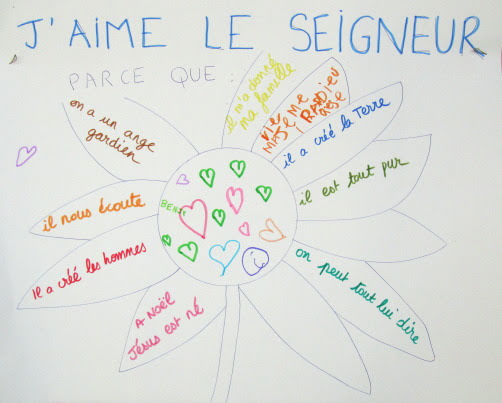 J'AIME LE SEIGNEUR
PARCE QUE :
il m'a donné
ma famille
il a créé la Terre
il est tout pur
on peut tout lui dire
A NOËL
Jésus est né
Il a créé les hommes
il nous écoute
on a un ange
gardien